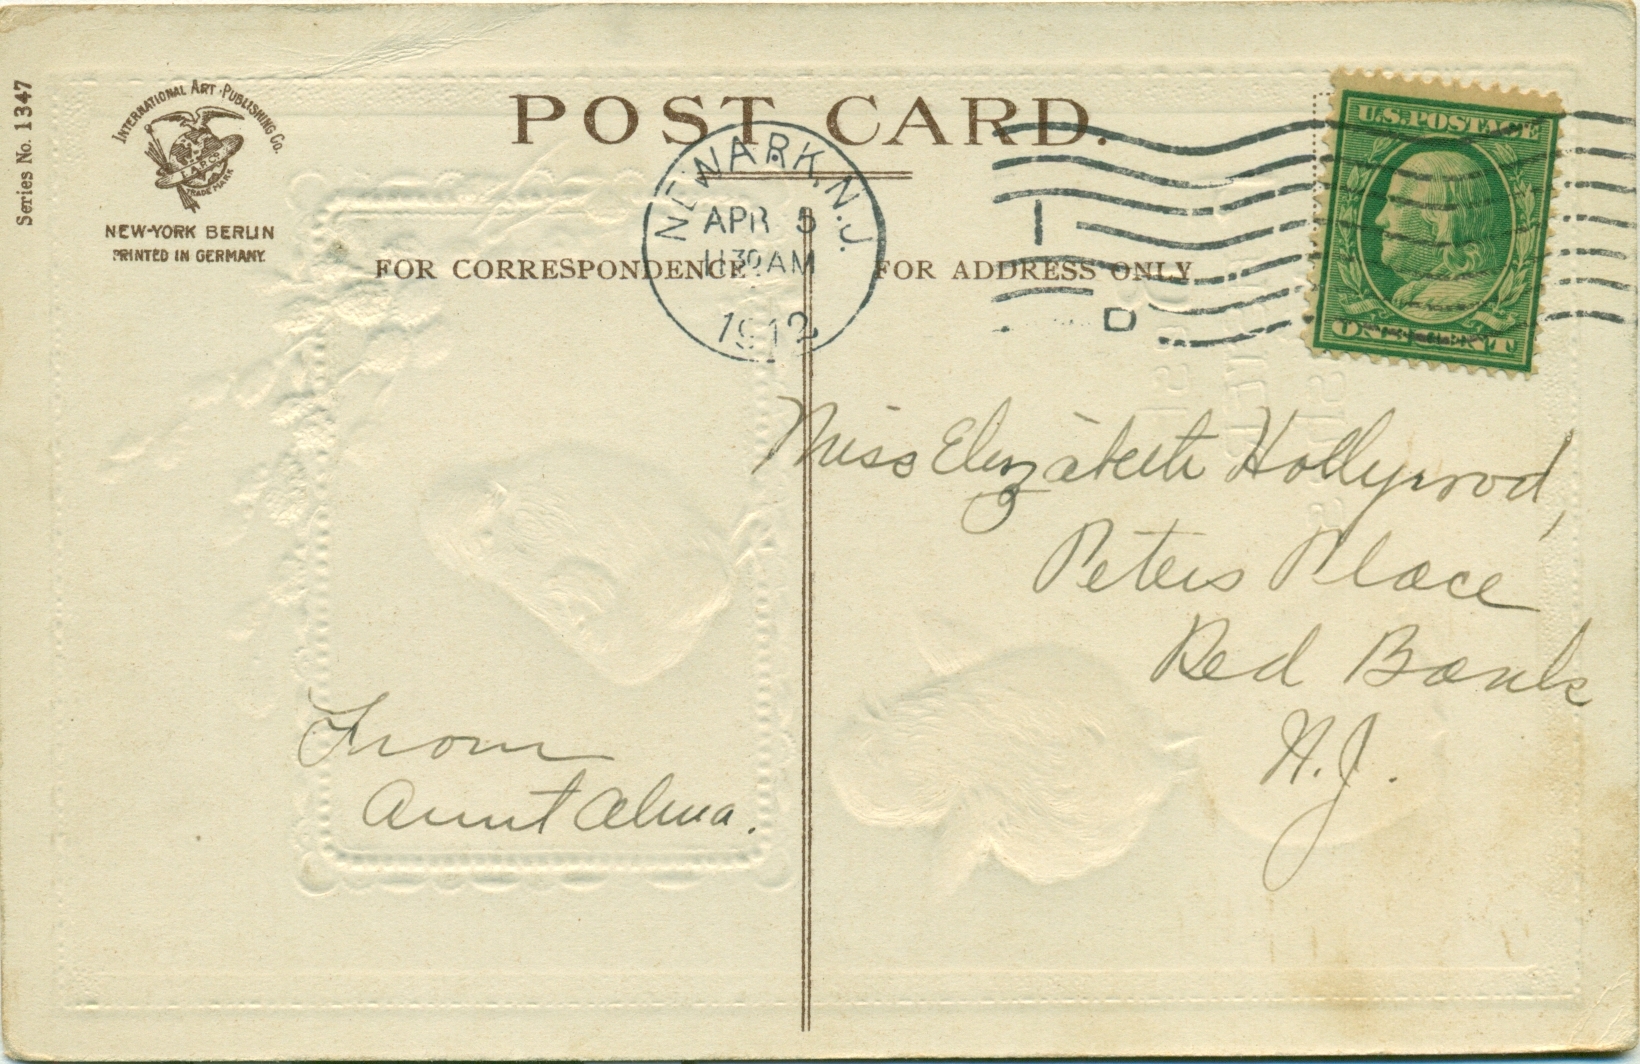 Series No. 1347
INTERNATIONAL ART PUBLISHING CO.
TRADE MARK
NEW-YORK BERLIN
PRINTED IN GERMANY.
POST CARD.
NEWARK, N.J.
APR 5
1130 AM
1912
U.S. POSTAGE
FOR CORRESPONDENCE
FOR ADDRESS ONLY
Miss Elizabeth Hollywood,
Peters Place
Red Bank
N.J.
From
Aunt Alma.